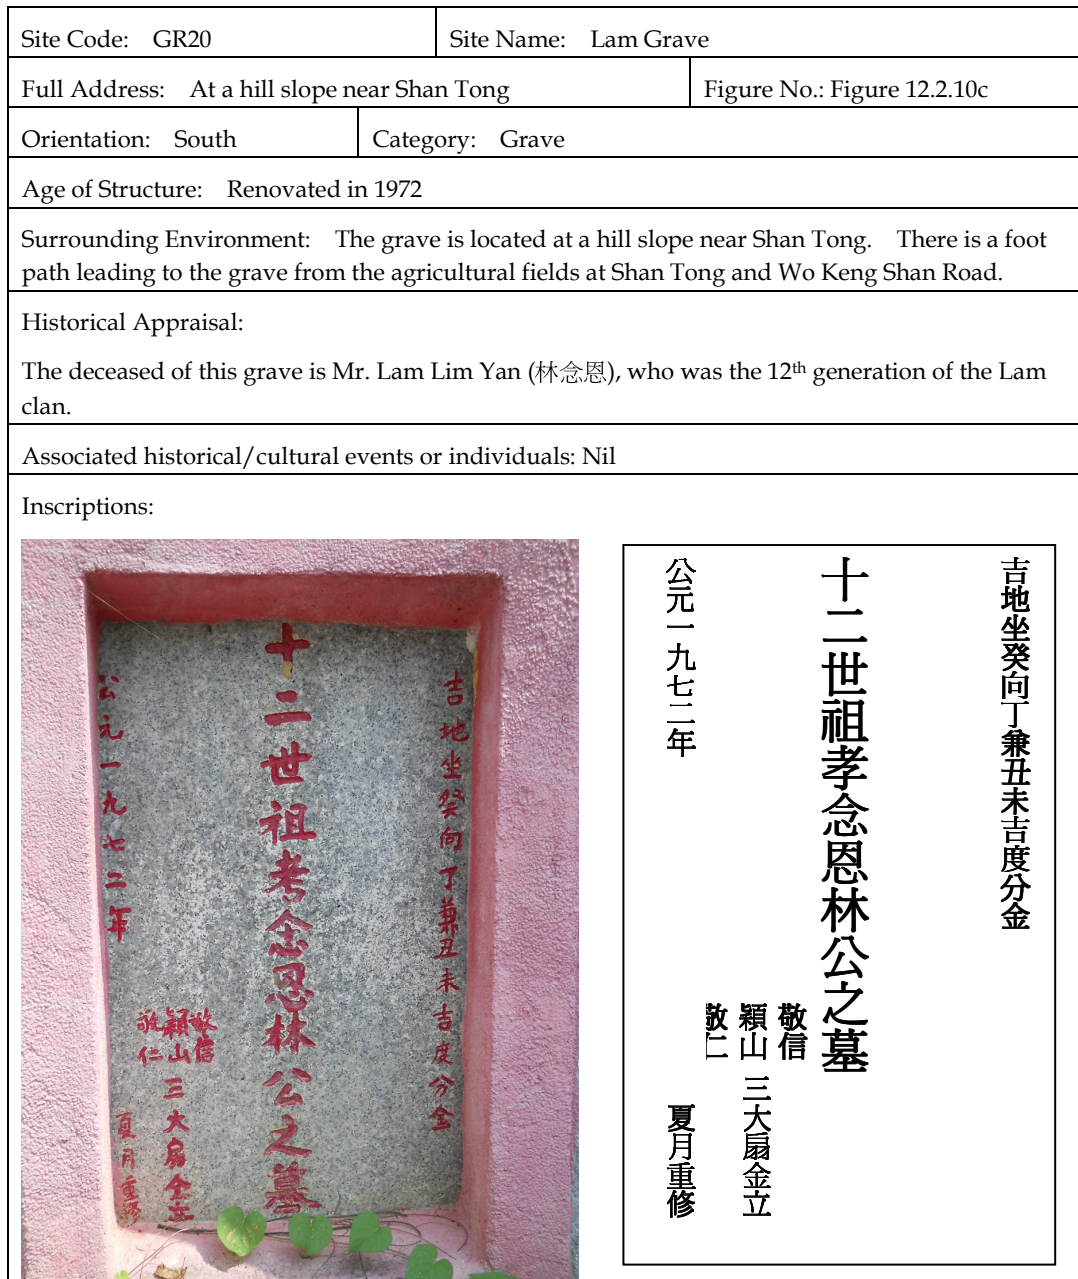 Site Code: GR20
Site Name: Lam Grave
Full Address: At a hill slope near Shan Tong
Figure No.: Figure 12.2.10c
Orientation: South
Category: Grave
Age of Structure: Renovated in 1972
Surrounding Environment: The grave is located at a hill slope near Shan Tong. There is a foot
path leading to the grave from the agricultural fields at Shan Tong and Wo Keng Shan Road.
Historical Appraisal:
The deceased of this grave is Mr. Lam Lim Yan (林念恩), who was the 12th generation of the Lam
clan.
Associated historical/cultural events or individuals: Nil
Inscriptions:
吉地坐癸向丁兼丑未吉度分金
十二世祖考念恩林公之墓
敬信
穎山
敬仁
三大房仝立
公元一九七二年
夏月重修
吉地坐癸向丁兼丑未吉度分金
十二世祖孝念恩林公之墓
敬信
穎山
敬仁
三大扇金立
公元一九七二年
夏月重修